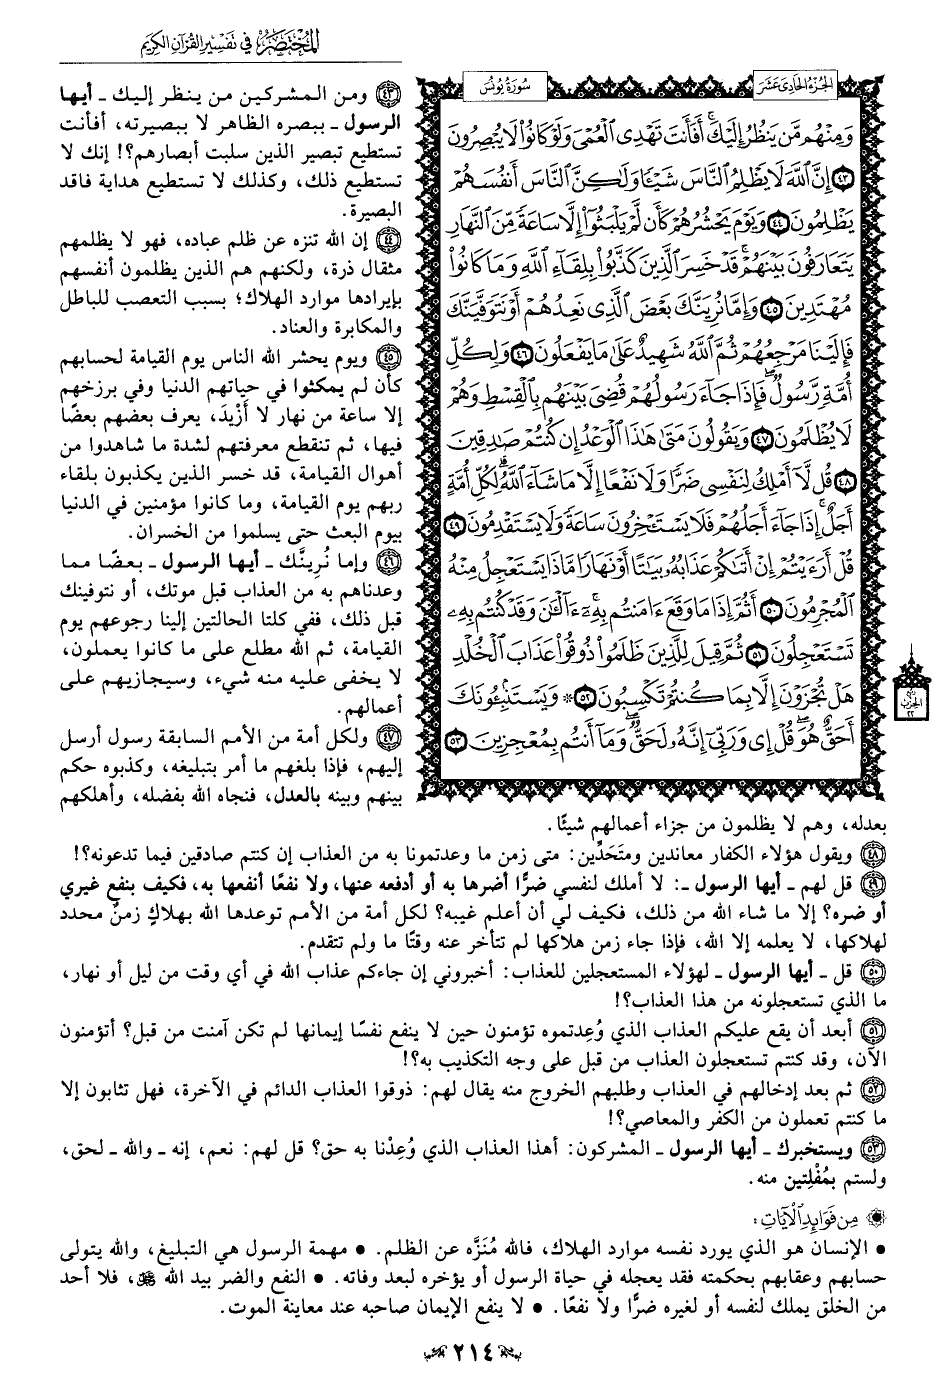 المختصر في تفسير القرآن الكريم
الجزء الحادي عشر
سورة يونس
وَمِنْهُم مَّن يَنظُرُ إِلَيْكَ ۚ أَفَأَنتَ تَهْدِى ٱلْعُمْىَ وَلَوْ كَانُوا۟ لَا يُبْصِرُونَ
٤٣ إِنَّ ٱللَّهَ لَا يَظْلِمُ ٱلنَّاسَ شَيْـًٔا وَلَـٰكِنَّ ٱلنَّاسَ أَنفُسَهُمْ
يَظْلِمُونَ ٤٤ وَيَوْمَ يَحْشُرُهُمْ كَأَن لَّمْ يَلْبَثُوٓا۟ إِلَّا سَاعَةً مِّنَ ٱلنَّهَارِ
يَتَعَارَفُونَ بَيْنَهُمْ ۚ قَدْ خَسِرَ ٱلَّذِينَ كَذَّبُوا۟ بِلِقَآءِ ٱللَّهِ وَمَا كَانُوا۟
مُهْتَدِينَ ٤٥ وَإِمَّا نُرِيَنَّكَ بَعْضَ ٱلَّذِى نَعِدُهُمْ أَوْ نَتَوَفَّيَنَّكَ
فَإِلَيْنَا مَرْجِعُهُمْ ثُمَّ ٱللَّهُ شَهِيدٌ عَلَىٰ مَا يَفْعَلُونَ ٤٦ وَلِكُلِّ
أُمَّةٍ رَّسُولٌ ۖ فَإِذَا جَآءَ رَسُولُهُمْ قُضِىَ بَيْنَهُم بِٱلْقِسْطِ وَهُمْ
لَا يُظْلَمُونَ ٤٧ وَيَقُولُونَ مَتَىٰ هَـٰذَا ٱلْوَعْدُ إِن كُنتُمْ صَـٰدِقِينَ
٤٨ قُل لَّآ أَمْلِكُ لِنَفْسِى ضَرًّا وَلَا نَفْعًا إِلَّا مَا شَآءَ ٱللَّهُ ۗ لِكُلِّ أُمَّةٍ
أَجَلٌ ۚ إِذَا جَآءَ أَجَلُهُمْ فَلَا يَسْتَـْٔخِرُونَ سَاعَةً ۖ وَلَا يَسْتَقْدِمُونَ ٤٩
قُلْ أَرَءَيْتُمْ إِنْ أَتَىٰكُمْ عَذَابُهُۥ بَيَـٰتًا أَوْ نَهَارًا مَّاذَا يَسْتَعْجِلُ مِنْهُ
ٱلْمُجْرِمُونَ ٥٠ أَثُمَّ إِذَا مَا وَقَعَ ءَامَنتُم بِهِۦٓ ۚ ءَآلْـَٔـٰنَ وَقَدْ كُنتُم بِهِۦ
تَسْتَعْجِلُونَ ٥١ ثُمَّ قِيلَ لِلَّذِينَ ظَلَمُوا۟ ذُوقُوا۟ عَذَابَ ٱلْخُلْدِ
هَلْ تُجْزَوْنَ إِلَّا بِمَا كُنتُمْ تَكْسِبُونَ ٥٢ ۞ وَيَسْتَنۢبِـُٔونَكَ
أَحَقٌّ هُوَ ۖ قُلْ إِى وَرَبِّىٓ إِنَّهُۥ لَحَقٌّ ۖ وَمَآ أَنتُم بِمُعْجِزِينَ ٥٣
٤٣ ومن المشركين من ينظر إليك ـ أيها
الرسول ـ ببصره الظاهر لا ببصيرته، أفأنت
تستطيع تبصير الذين سلبت أبصارهم؟! إنك لا
تستطيع ذلك، وكذلك لا تستطيع هداية فاقد
البصيرة.
٤٤ إن الله تنزه عن ظلم عباده، فهو لا يظلمهم
مثقال ذرة، ولكنهم هم الذين يظلمون أنفسهم
بإيرادها موارد الهلاك؛ بسبب التعصب للباطل
والمكابرة والعناد.
٤٥ ويوم يحشر الله الناس يوم القيامة لحسابهم
كأن لم يمكثوا في حياتهم الدنيا وفي برزخهم
إلا ساعة من نهار لا أَزْيدَ، يعرف بعضهم بعضًا
فيها، ثم تنقطع معرفتهم لشدة ما شاهدوا من
أهوال القيامة، قد خسر الذين يكذبون بلقاء
ربهم يوم القيامة، وما كانوا مؤمنين في الدنيا
بيوم البعث حتى يسلموا من الخسران.
٤٦ وإما نُرِينَّك ـ أيها الرسول ـ بعضًا مما
وعدناهم به من العذاب قبل موتك، أو نتوفينك
قبل ذلك، ففي كلتا الحالتين إلينا رجوعهم يوم
القيامة، ثم الله مطلع على ما كانوا يعملون،
لا يخفى عليه منه شيء، وسيجازيهم على
أعمالهم.
٤٧ ولكل أمة من الأمم السابقة رسول أرسل
إليهم، فإذا بلغهم ما أمر بتبليغه، وكذبوه حكم
بينهم وبينه بالعدل، فنجاه الله بفضله، وأهلكهم
بعدله، وهم لا يظلمون من جزاء أعمالهم شيئًا.
٤٨ ويقول هؤلاء الكفار معاندين ومتَحَدِّين: متى زمن ما وعدتمونا به من العذاب إن كنتم صادقين فيما تدعونه؟!
٤٩ قل لهم ـ أيها الرسول ـ: لا أملك لنفسي ضرًّا أضرها به أو أدفعه عنها، ولا نفعًا أنفعها به، فكيف بنفع غيري
أو ضره؟ إلا ما شاء الله من ذلك، فكيف لي أن أعلم غيبه؟ لكل أمة من الأمم توعدها الله بهلاكٍ زمنٌ محدد
لهلاكها، لا يعلمه إلا الله، فإذا جاء زمن هلاكها لم تتأخر عنه وقتًا ما ولم تتقدم.
٥٠ قل ـ أيها الرسول ـ لهؤلاء المستعجلين للعذاب: أخبروني إن جاءكم عذاب الله في أي وقت من ليل أو نهار،
ما الذي تستعجلونه من هذا العذاب؟!
٥١ أبعد أن يقع عليكم العذاب الذي وُعِدتموه تؤمنون حين لا ينفع نفسًا إيمانها لم تكن آمنت من قبل؟ أتؤمنون
الآن، وقد كنتم تستعجلون العذاب من قبل على وجه التكذيب به؟!
٥٢ ثم بعد إدخالهم في العذاب وطلبهم الخروج منه يقال لهم: ذوقوا العذاب الدائم في الآخرة، فهل تثابون إلا
ما كنتم تعملون من الكفر والمعاصي؟!
٥٣ ويستخبرك ـ أيها الرسول ـ المشركون: أهذا العذاب الذي وُعِدْنا به حق؟ قل لهم: نعم، إنه ـ والله ـ لحق،
ولستم بمُفْلِتين منه.
من فوائد الآيات:
• الإنسان هو الذي يورد نفسه موارد الهلاك، فالله مُنَزَّه عن الظلم. • مهمة الرسول هي التبليغ، والله يتولى
حسابهم وعقابهم بحكمته فقد يعجله في حياة الرسول أو يؤخره لبعد وفاته. • النفع والضر بيد الله ، فلا أحد
من الخلق يملك لنفسه أو لغيره ضرًّا ولا نفعًا. • لا ينفع الإيمان صاحبه عند معاينة الموت.
٢١٤